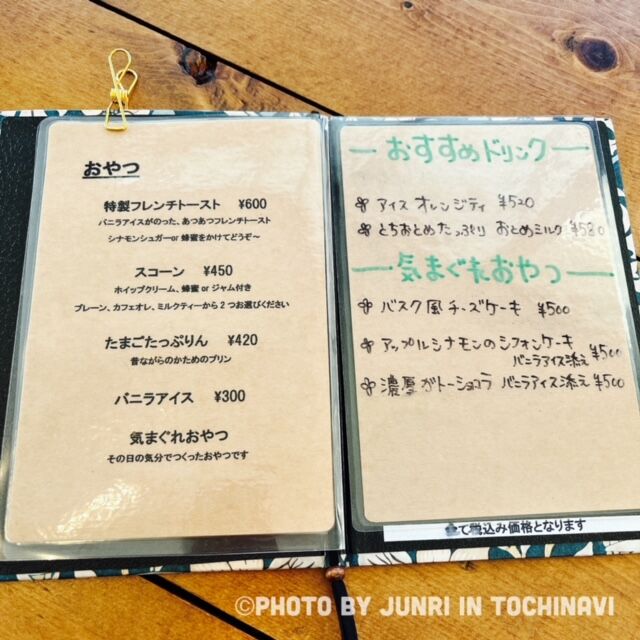 おやつ
特製フレンチトースト ¥600
バニラアイスがのった、あつあつフレンチトースト
シナモンシュガーor 蜂蜜をかけてどうぞ～
スコーン ¥450
ホイップクリーム、蜂蜜 or ジャム付き
プレーン、カフェオレ、ミルクティーから2つお選びください
たまごたっぷりん ¥420
昔ながらのかためのプリン
バニラアイス ¥300
気まぐれおやつ
その日の気分でつくったおやつです
おすすめドリンク
アイス オレンジティ ¥520
とちおとめたっぷり おとめミルク ¥580
気まぐれおやつ
バスク風チーズケーキ ¥500
アップルシナモンのシフォンケーキ
バニラアイス添え ¥500
濃厚ガトーショコラ バニラアイス添え ¥500
て税込み価格となります
©PHOTO BY JUNRI IN TOCHINAVI